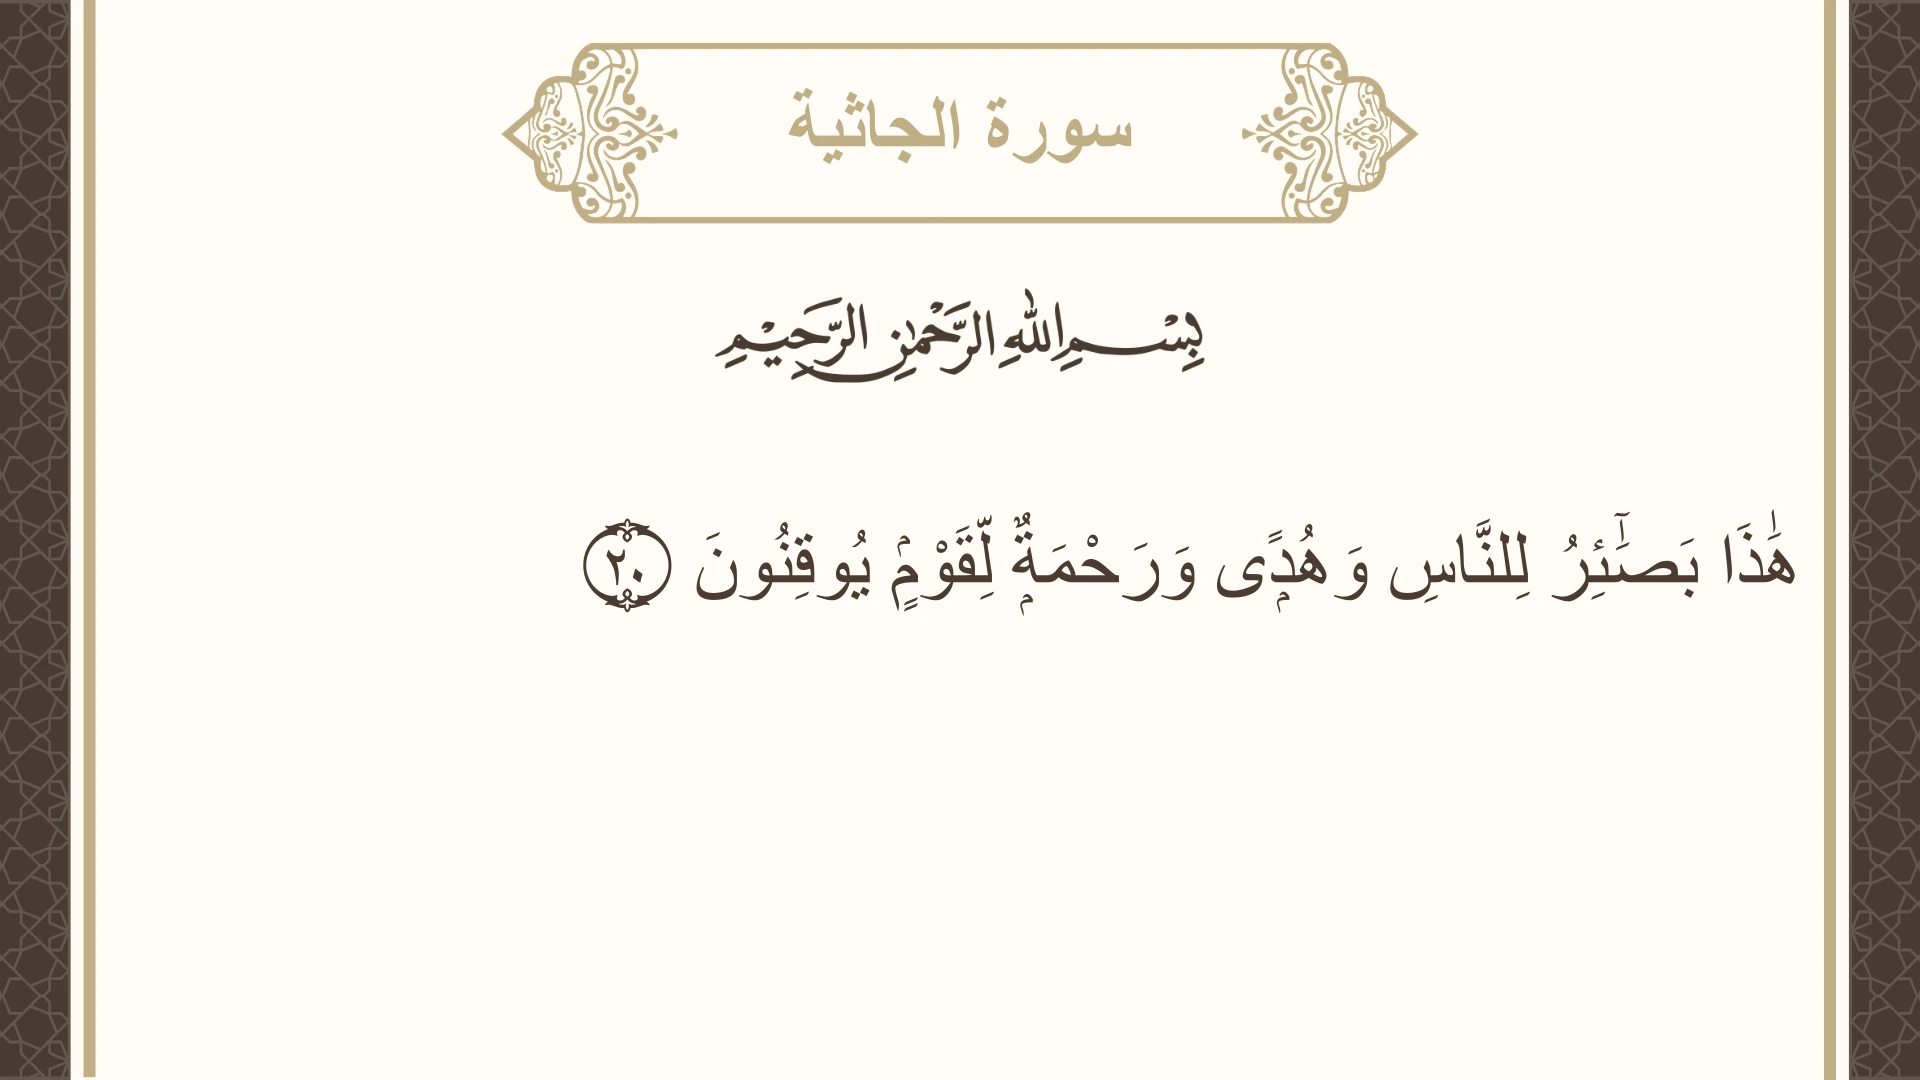 سورة الجاثية
بِسْمِ اللهِ الرَّحْمٰنِ الرَّحِيْمِ
هَٰذَا بَصَٰٓئِرُ لِلنَّاسِ وَهُدًۭى وَرَحْمَةٌۭ لِّقَوْمٍۢ يُوقِنُونَ ٢٠